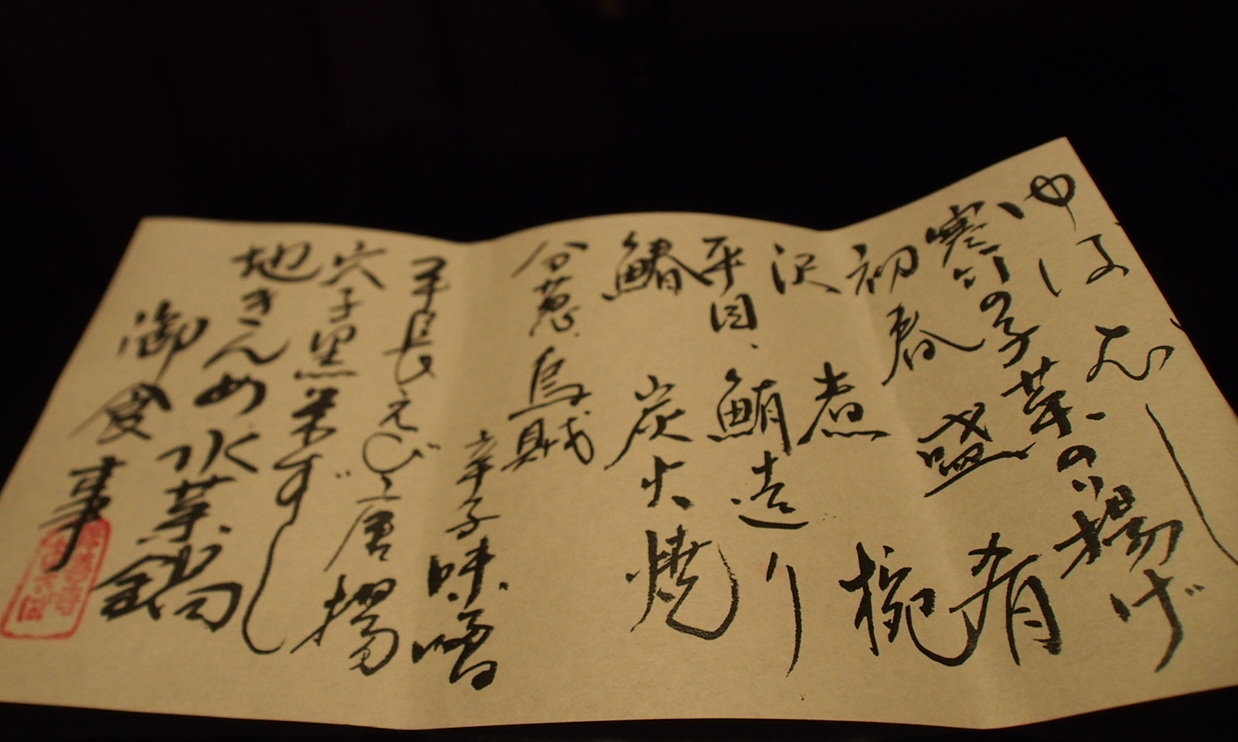 ゆばむし
寒竹の子菜の花揚げ
初春盛肴
沢煮椀
平目、鮪造り
鰆炭火焼
分葱烏賊
辛子味噌
手長えび唐揚
穴子黒米ずし
地きんめ水菜鍋
御食事